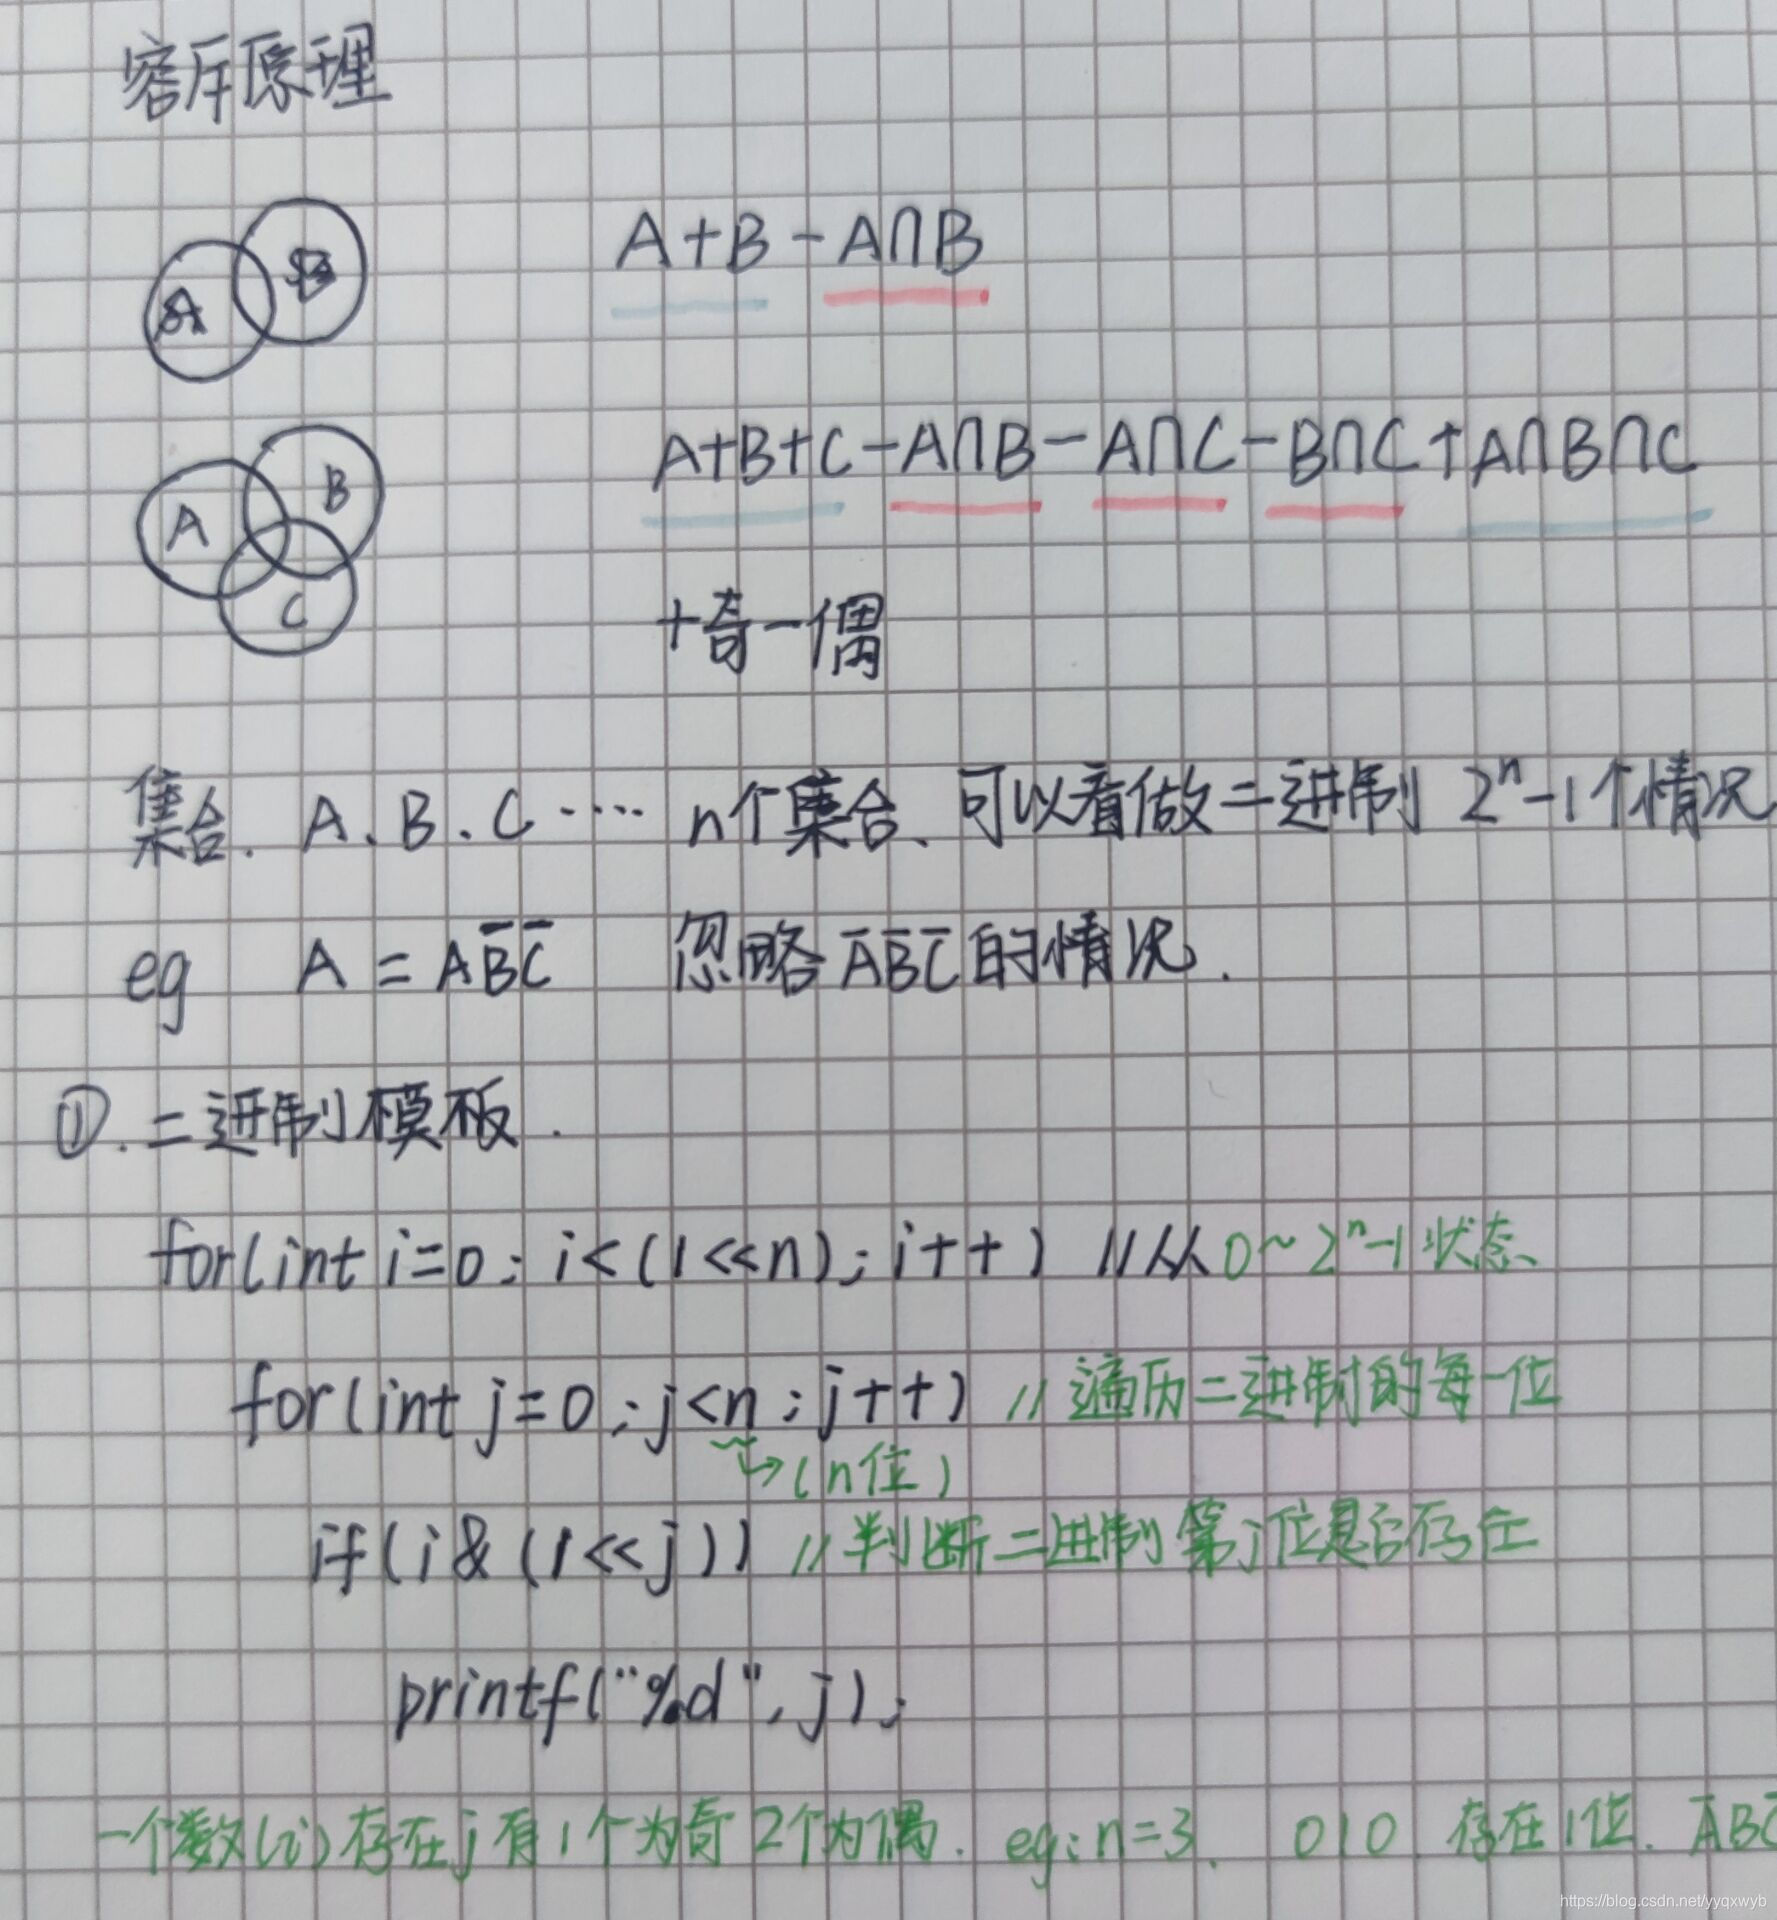 容斥原理
A B
A+B-A∩B
A B C
A+B+C-A∩B-A∩C-B∩C+A∩B∩C
+奇-偶
集合. A、B、C ····· n个集合、可以看做二进制 2ⁿ-1个情况
eg A = AB̅C̅ 忽略 A̅B̅C̅ 的情况.
①. 二进制模板.
for(int i=0; i<(1<<n); i++) //从 0~2ⁿ-1 状态
for(int j=0; j<n; j++) // 遍历二进制的每一位
(n位)
if(i&(1<<j)) //判断二进制第j位是否存在
printf("%d", j);
一个数(i)存在j有1个为奇 2个为偶. eg: n=3. 010 存在1位. A̅BC̅
https://blog.csdn.net/yyqxwyb